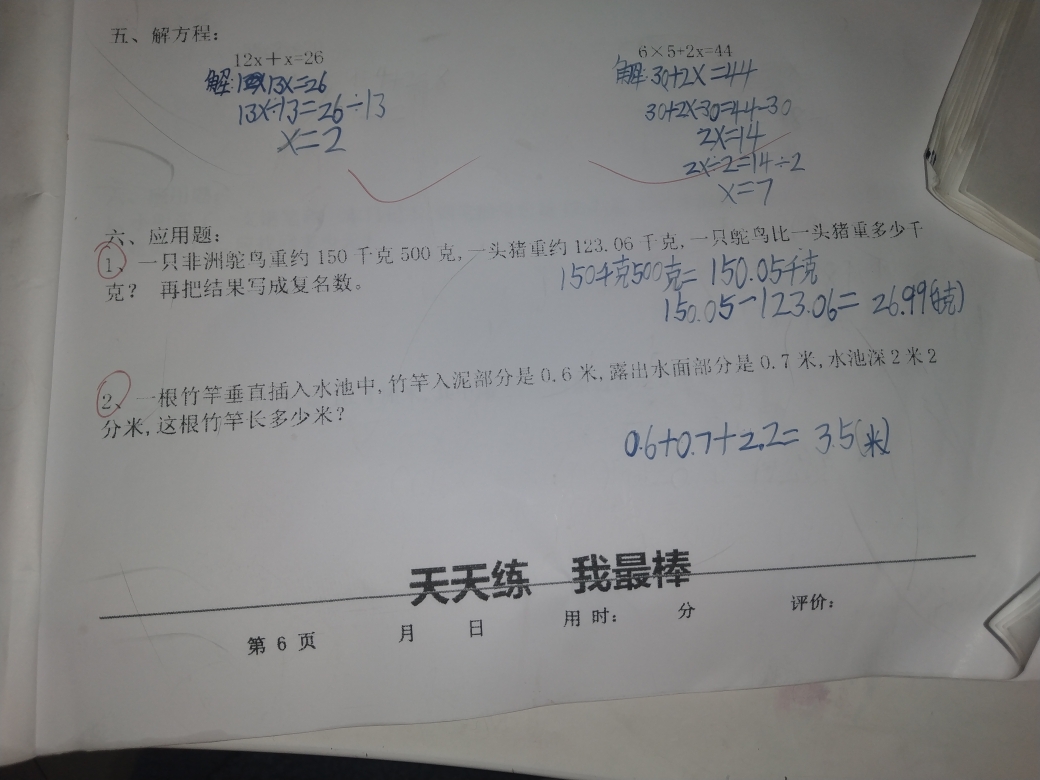 五、解方程：
12x＋x=26
6×5+2x=44
解：13x=26
13x÷13=26÷13
x=2
解 30+2x=44
30+2x-30=44-30
2x=14
2x÷2=14÷2
x=7
六、应用题：
1、一只非洲鸵鸟重约150千克500克，一头猪重约123.06千克，一只鸵鸟比一头猪重多少千
克？ 再把结果写成复名数。
150千克500克=150.05千克
150.05-123.06=26.99(千克)
2、一根竹竿垂直插入水池中，竹竿入泥部分是0.6米，露出水面部分是0.7米，水池深2米2
分米，这根竹竿长多少米？
0.6+0.7+2.2=3.5(米)
天天练 我最棒
第 6 页 月 日 用时： 分 评价：